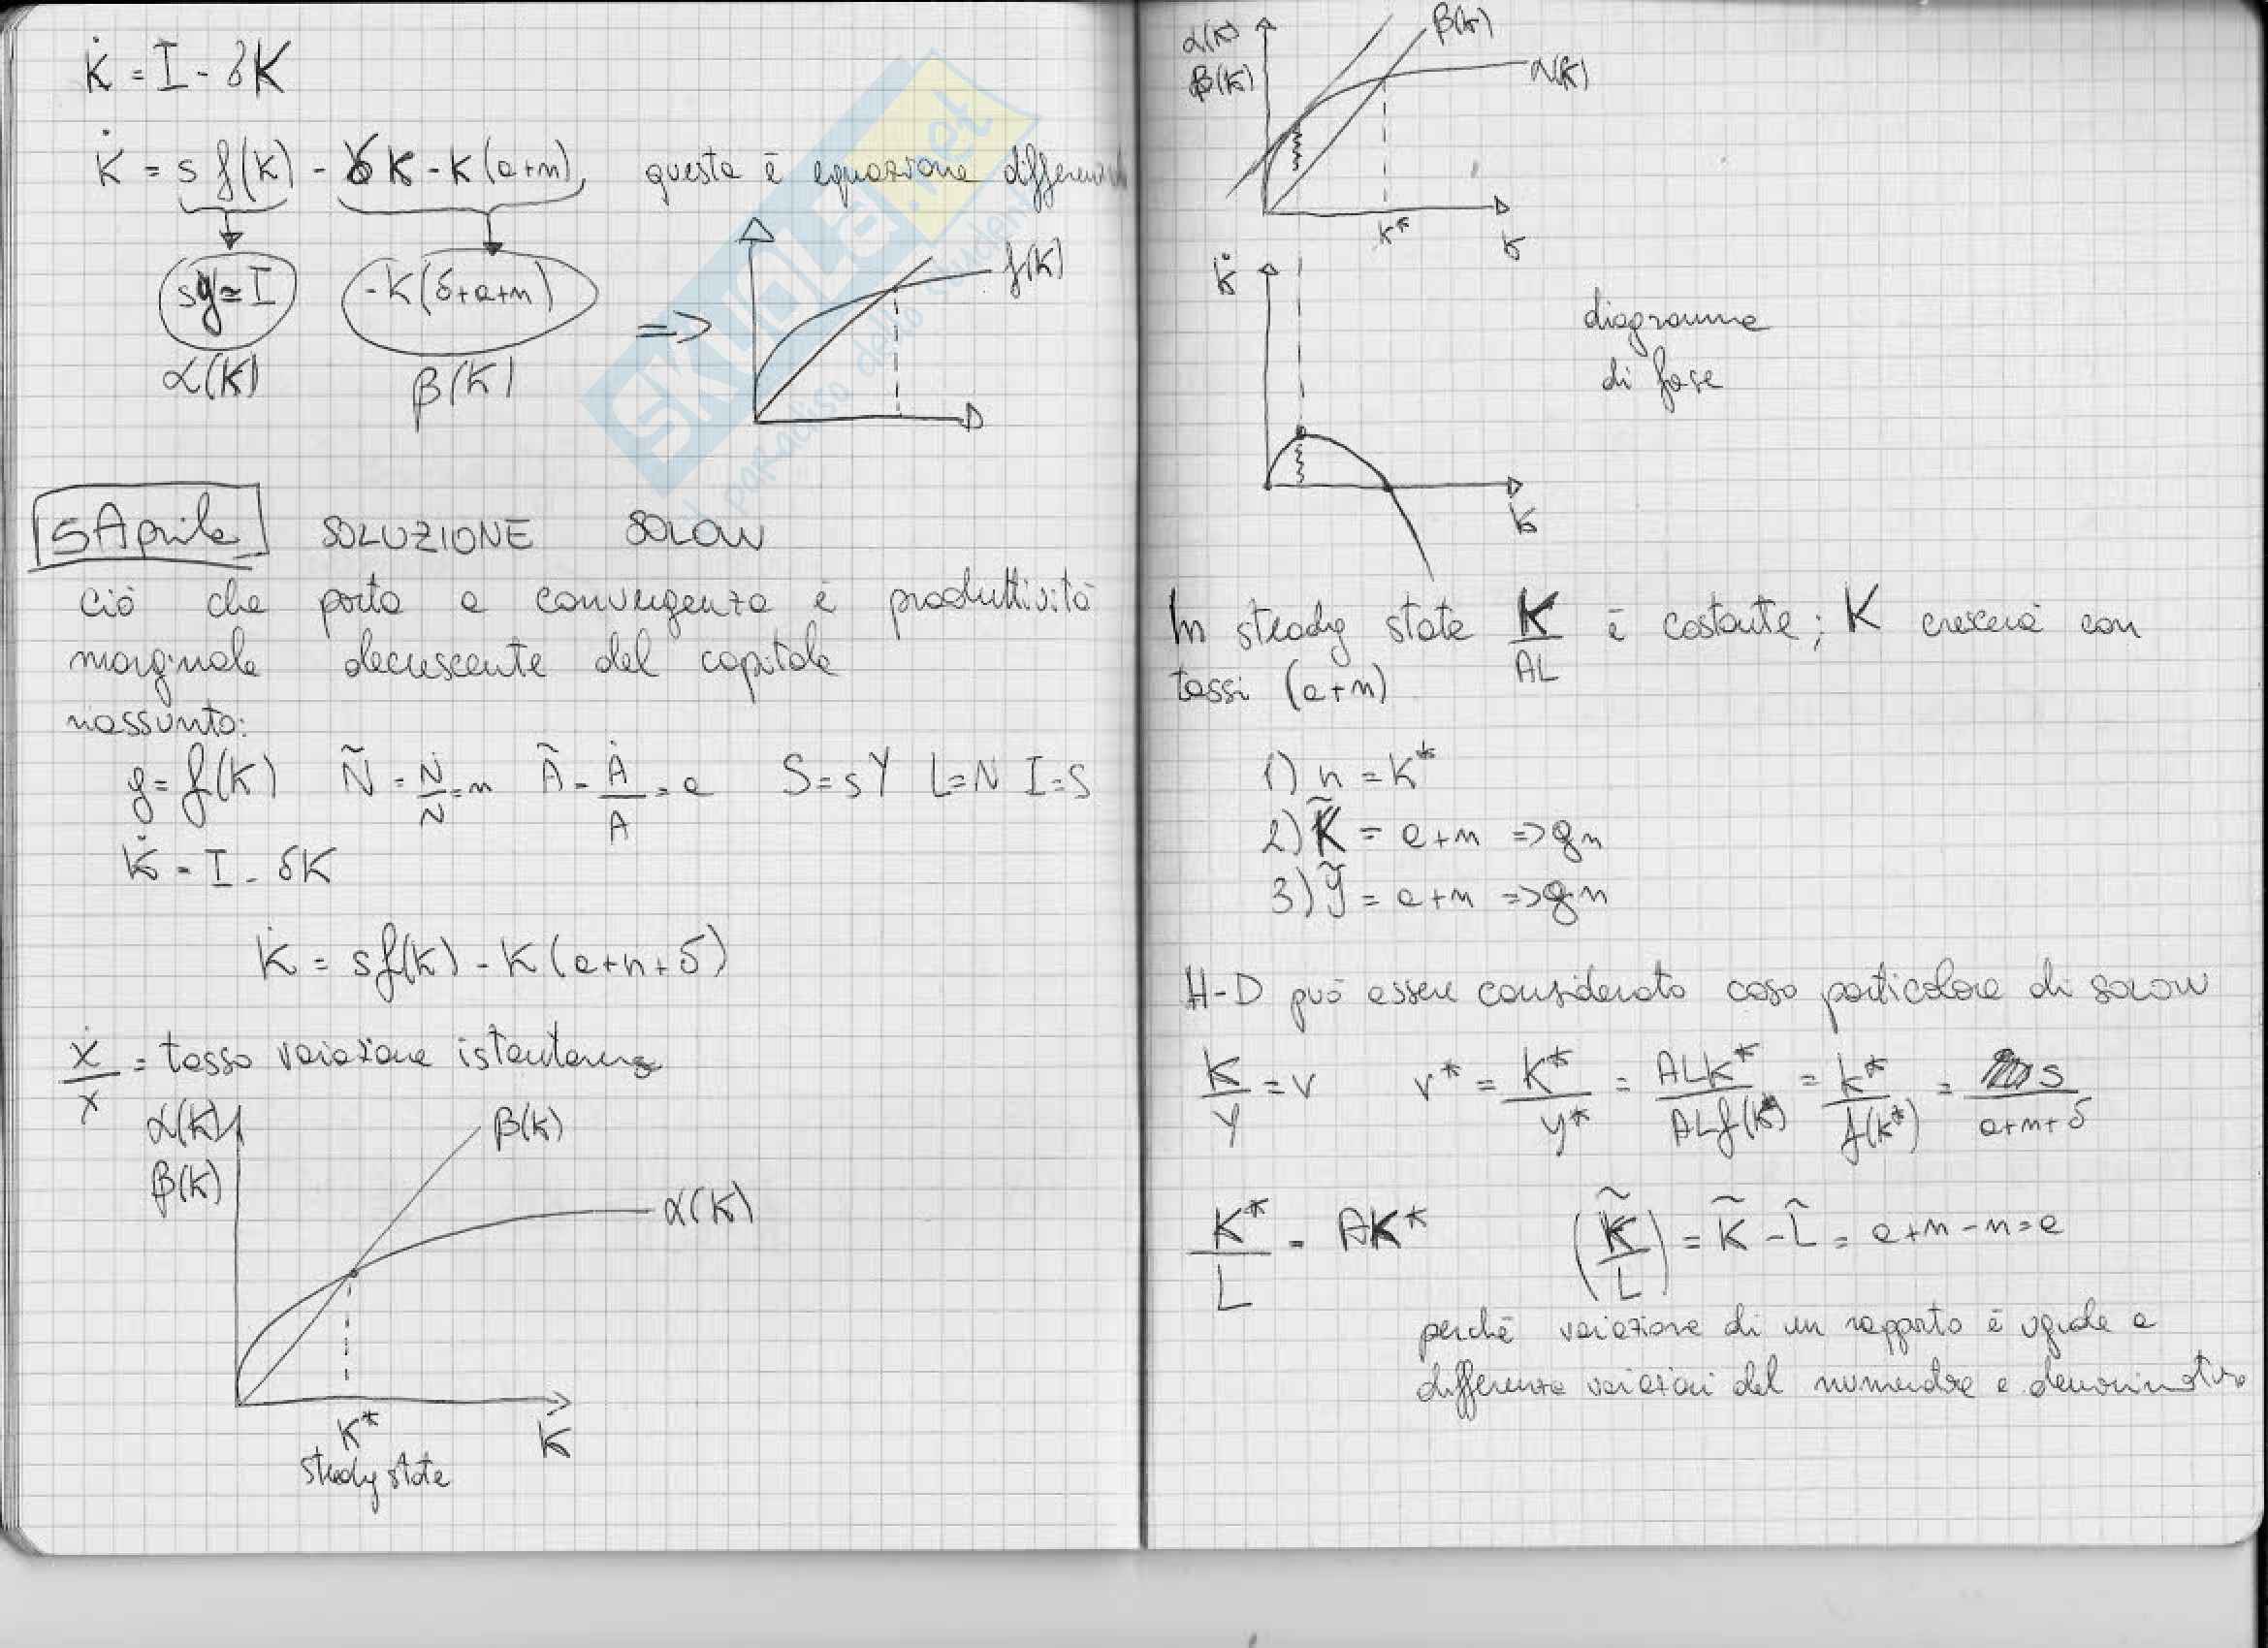 K̇ = I - δK
k̇ = s f(k) - δk - k(a+n), questa è equazione differenzi
sy = I
-k(δ+a+n)
=>
f(k)
α(k)
β(k)
5 Aprile SOLUZIONE SOLOW
ciò che porta a convergenza è produttività
marginale decrescente del capitale
riassunto:
y = f(k) Ñ = Ṅ/N = n Ã = Ȧ/A = a S = sY L = N I = S
K̇ = I - δK
k̇ = sf(k) - k(a+n+δ)
ẋ/x = tasso variazione istantanea
α(k)
β(k)
β(k)
α(k)
k*
k
steady state
α(k)
β(k)
β(k)
α(k)
k*
k
k̇
diagramma
di fase
k
In steady state K/AL è costante; K crescerà con
tassi (a+n)
1) k = k*
2) K̃ = a+n => gn
3) Ỹ = a+n => gn
H-D può essere considerato caso particolare di SOLOW
K/Y = v v* = K*/Y* = ALk*/ALf(k*) = k*/f(k*) = s/a+n+δ
K*/L = Ak* (K̃/L) = K̃ - L̃ = a+n-n = a
perchè variazione di un rapporto è uguale a
differenza variazioni del numeratore e denominatore
SKUOLA.net
il paradiso dello studente